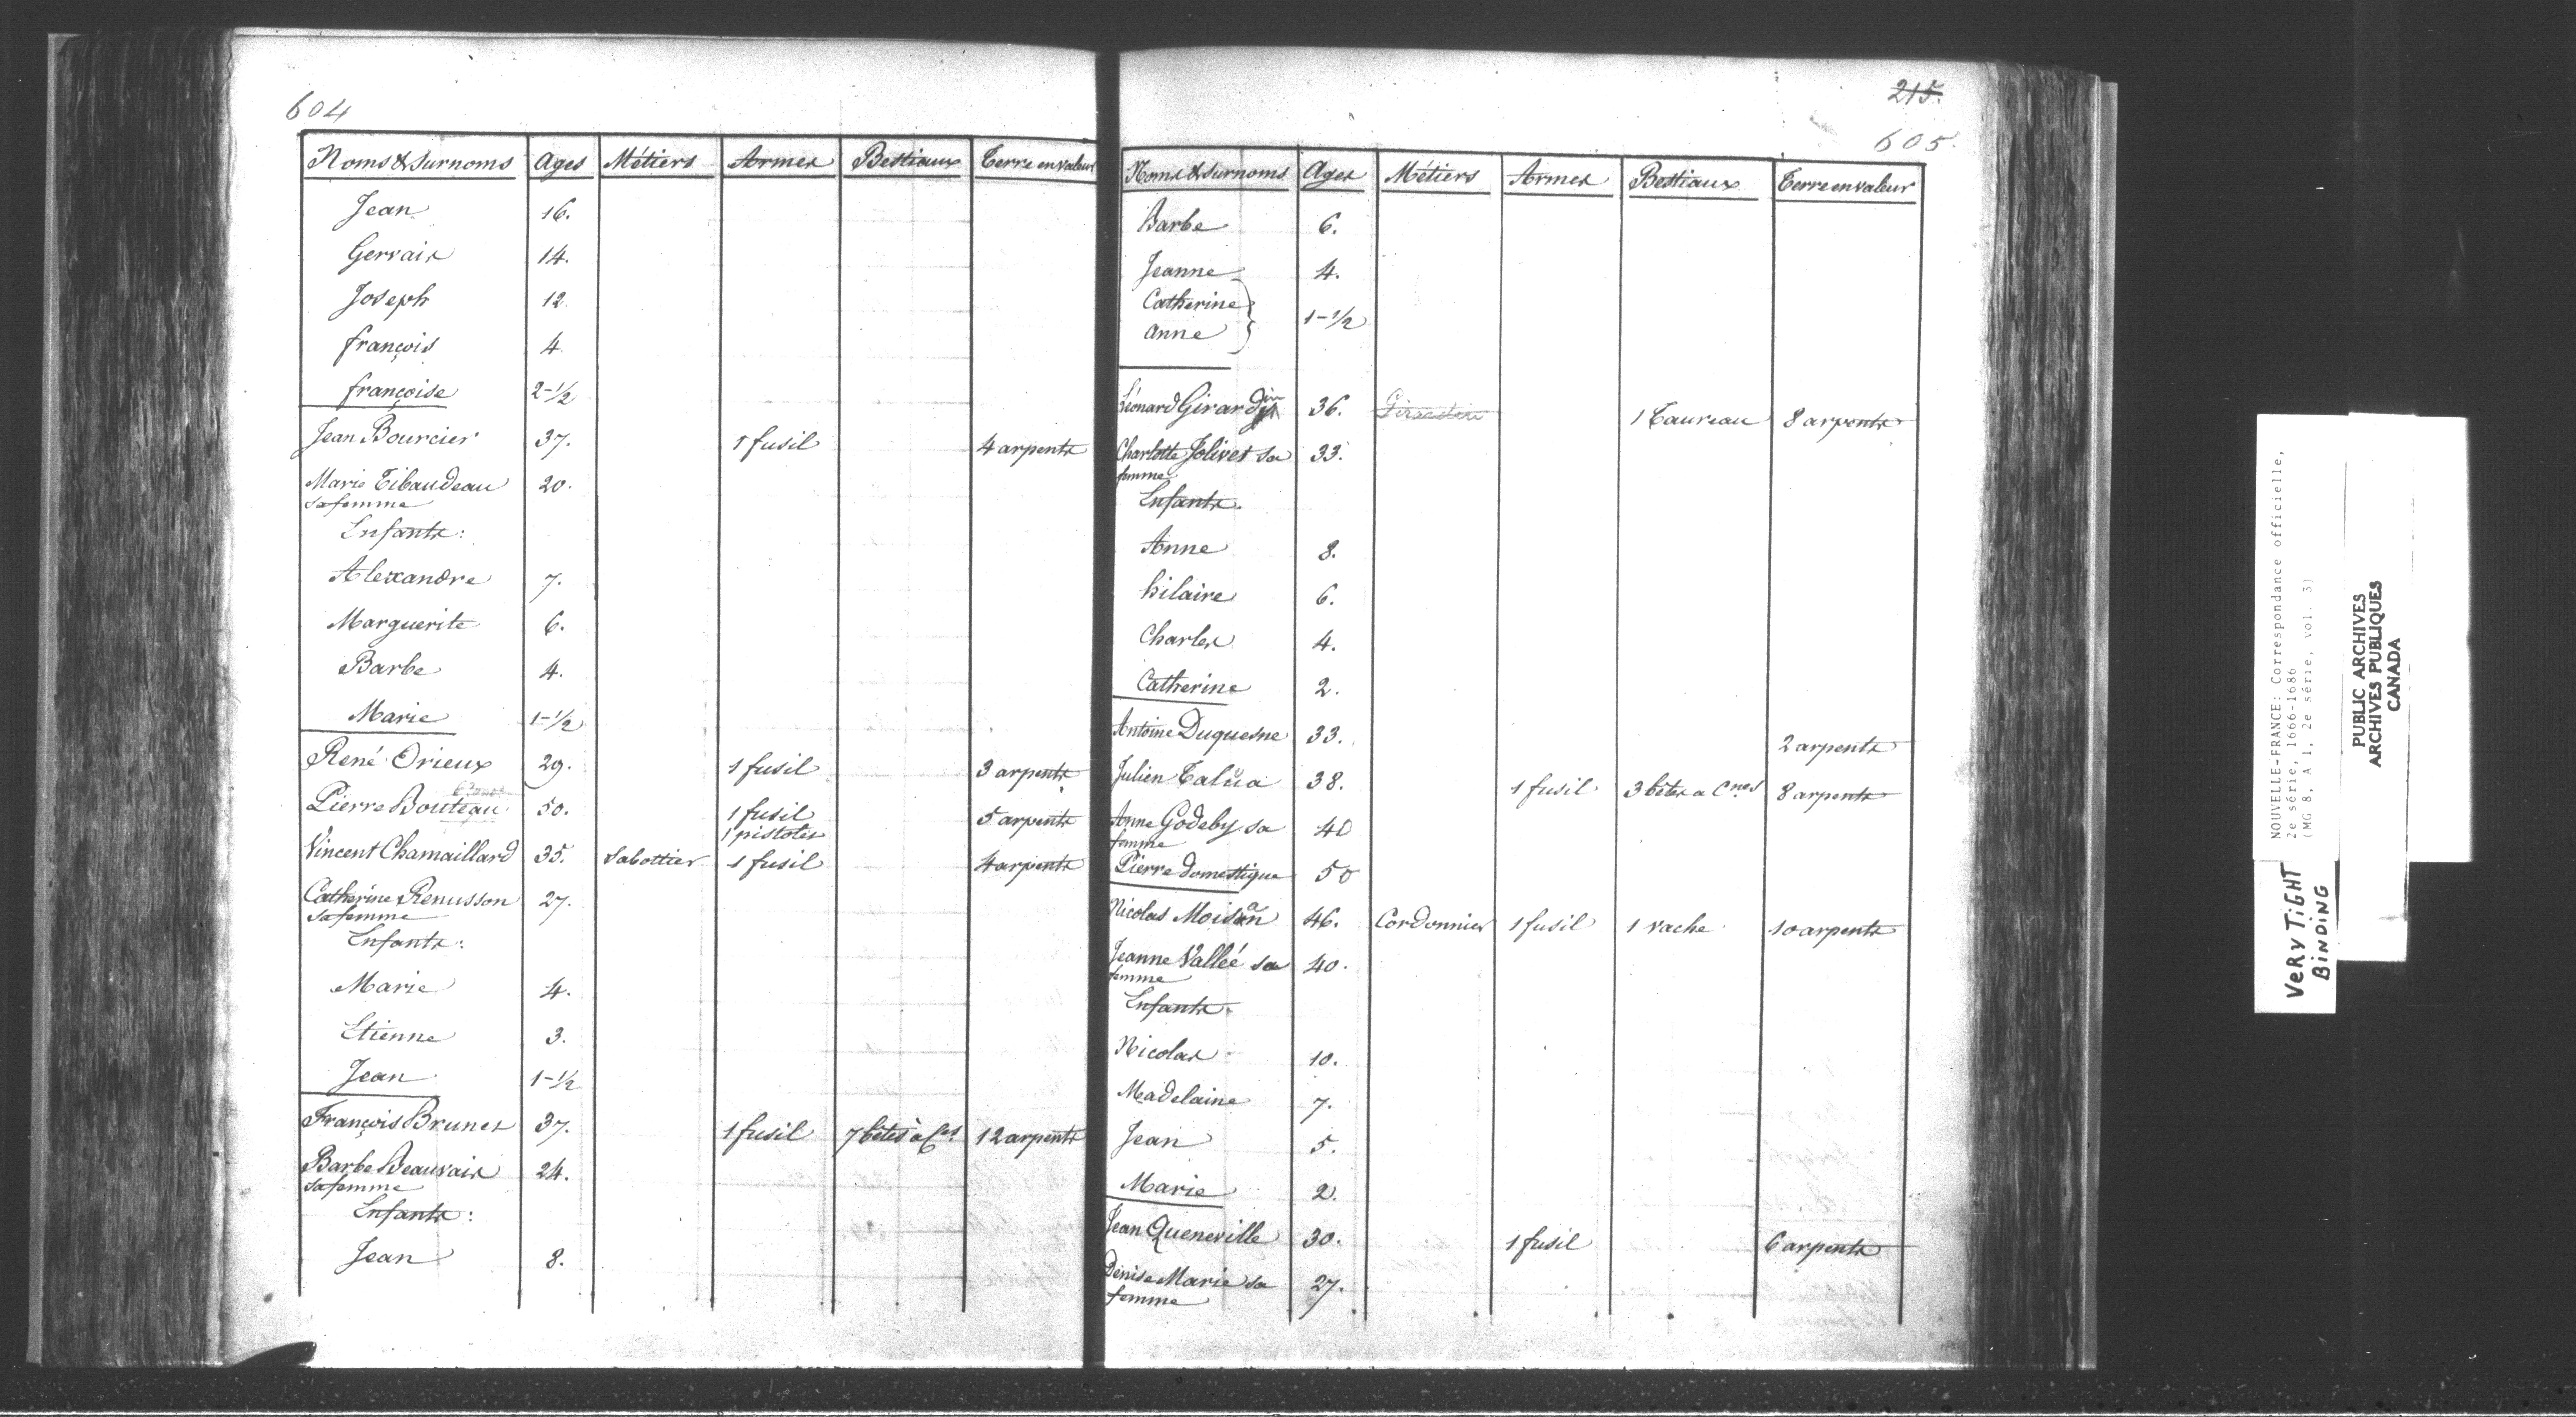 604
Noms & surnoms Ages Métiers Armes Bestiaux Terre en valeur
Jean 16.
Gervais 14.
Joseph 12.
françois 4.
françoise 2-1/2
Jean Bourcier 37. 1 fusil 4 arpents
Marie Tibaudeau 20.
sa femme
Enfants:
Alexandre 7.
Marguerite 6.
Barbe 4.
Marie 1-1/2
René Orieux 29. 1 fusil 3 arpents
Pierre Bouteau 50. 1 fusil 5 arpents
1 pistolet
Vincent Chamaillard 35. Sabottier 1 fusil 4 arpents
Catherine Renusson 27.
sa femme
Enfants:
Marie 4.
Etienne 3.
Jean 1-1/2
François Brunet 37. 1 fusil 7 bêtes à Ces 12 arpents
Barbe Beauvais 24.
sa femme
Enfants:
Jean 8.
215.
605.
Noms & surnoms Ages Métiers Armes Bestiaux Terre en valeur
Barbe 6.
Jeanne 4.
Catherine
Anne 1-1/2
Léonard Girardin 36. Girardin 1 Taureau 8 arpents
Charlotte Jolivet sa 33.
femme
Enfants.
Anne 8.
hilaire 6.
Charles 4.
Catherine 2.
Antoine Duquesne 33. 2 arpents
Julien Talua 38. 1 fusil 3 bêtes a Cnes 8 arpents
Anne Godeby sa 40
femme
Pierre domestique 50
Nicolas Moisan 46. Cordonnier 1 fusil 1 vache 10 arpents
Jeanne Vallée sa 40.
femme
Enfants.
Nicolas 10.
Madelaine 7.
Jean 5.
Marie 2.
Jean Queneville 30. 1 fusil 6 arpents
Denise Marie sa 27.
femme
NOUVELLE-FRANCE: Correspondance officielle,
2e série, 1666-1686
(MG 8, A 1, 2e série, vol. 3)
PUBLIC ARCHIVES
ARCHIVES PUBLIQUES
CANADA
VERY TIGHT
BINDING